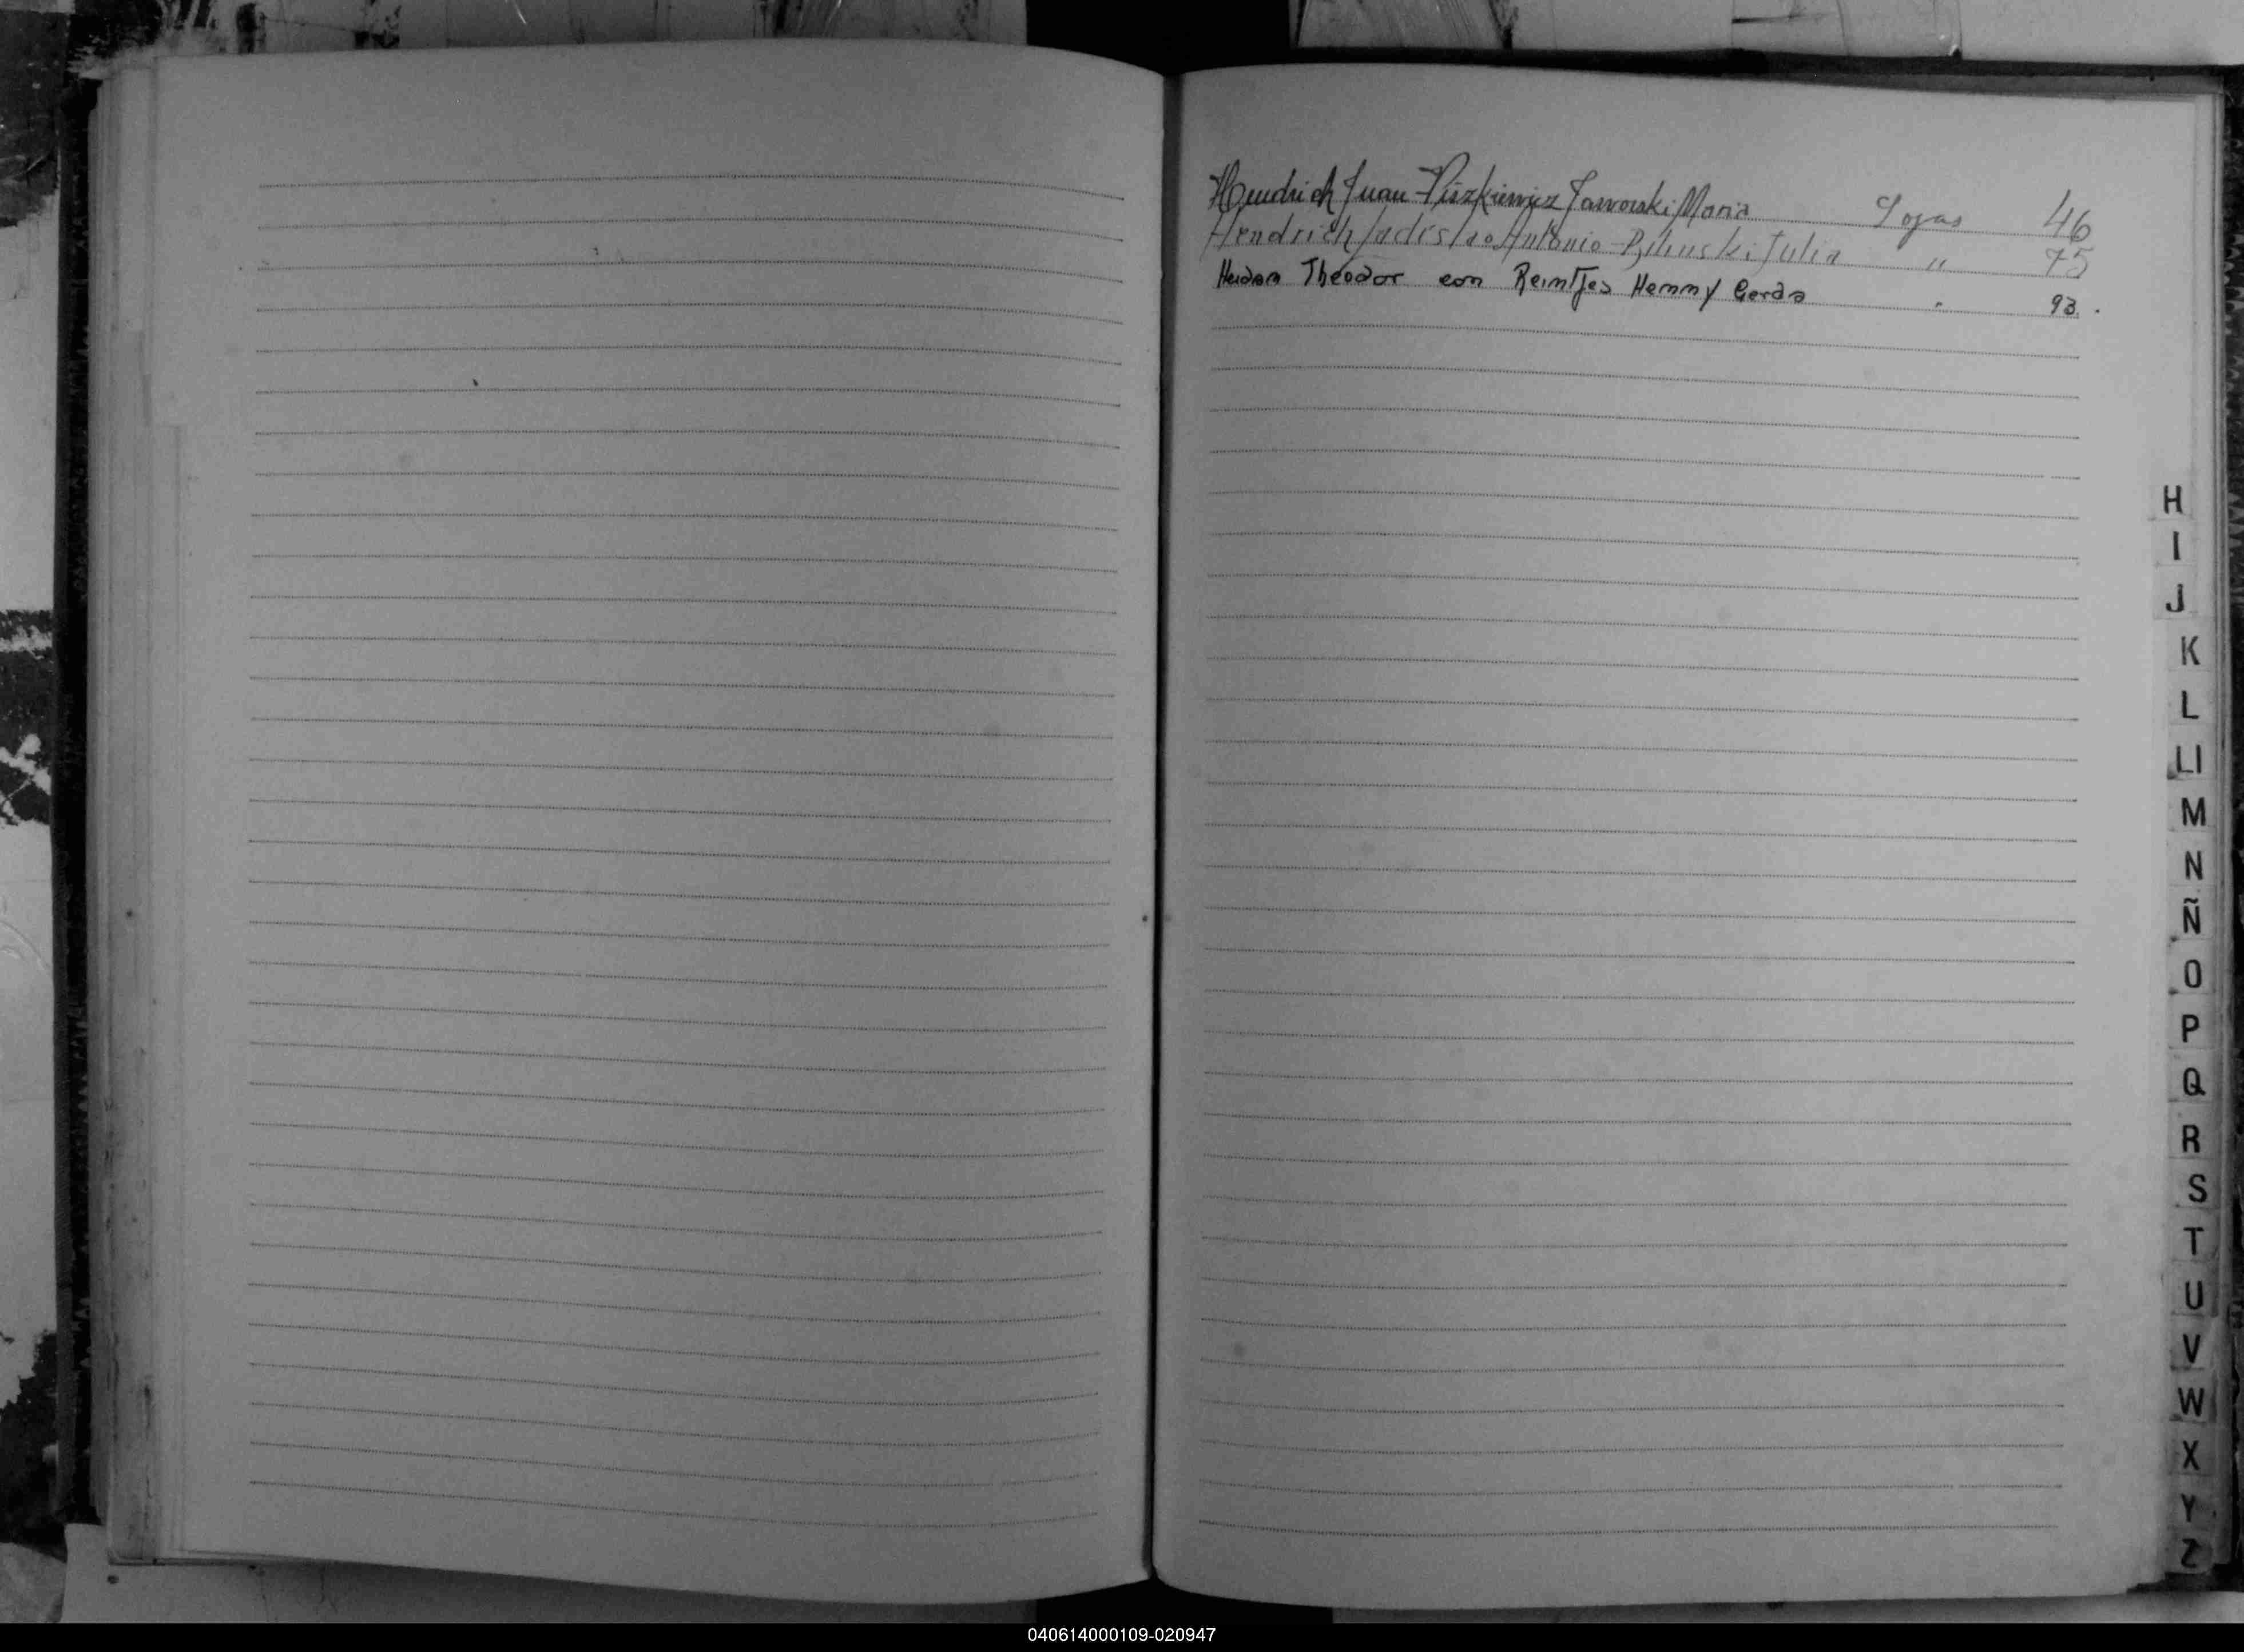 Hendrich Juan - Piszkiewicz Jaworski Maria Fojas 46
Hendrich Ladislao Antonio - Bilinski Julia " 75
Theodor con Reintjes Hemmy Gerda " 93.
H
I
J
K
L
Ll
M
N
Ñ
O
P
Q
R
S
T
U
V
W
X
Y
Z
040614000109-020947